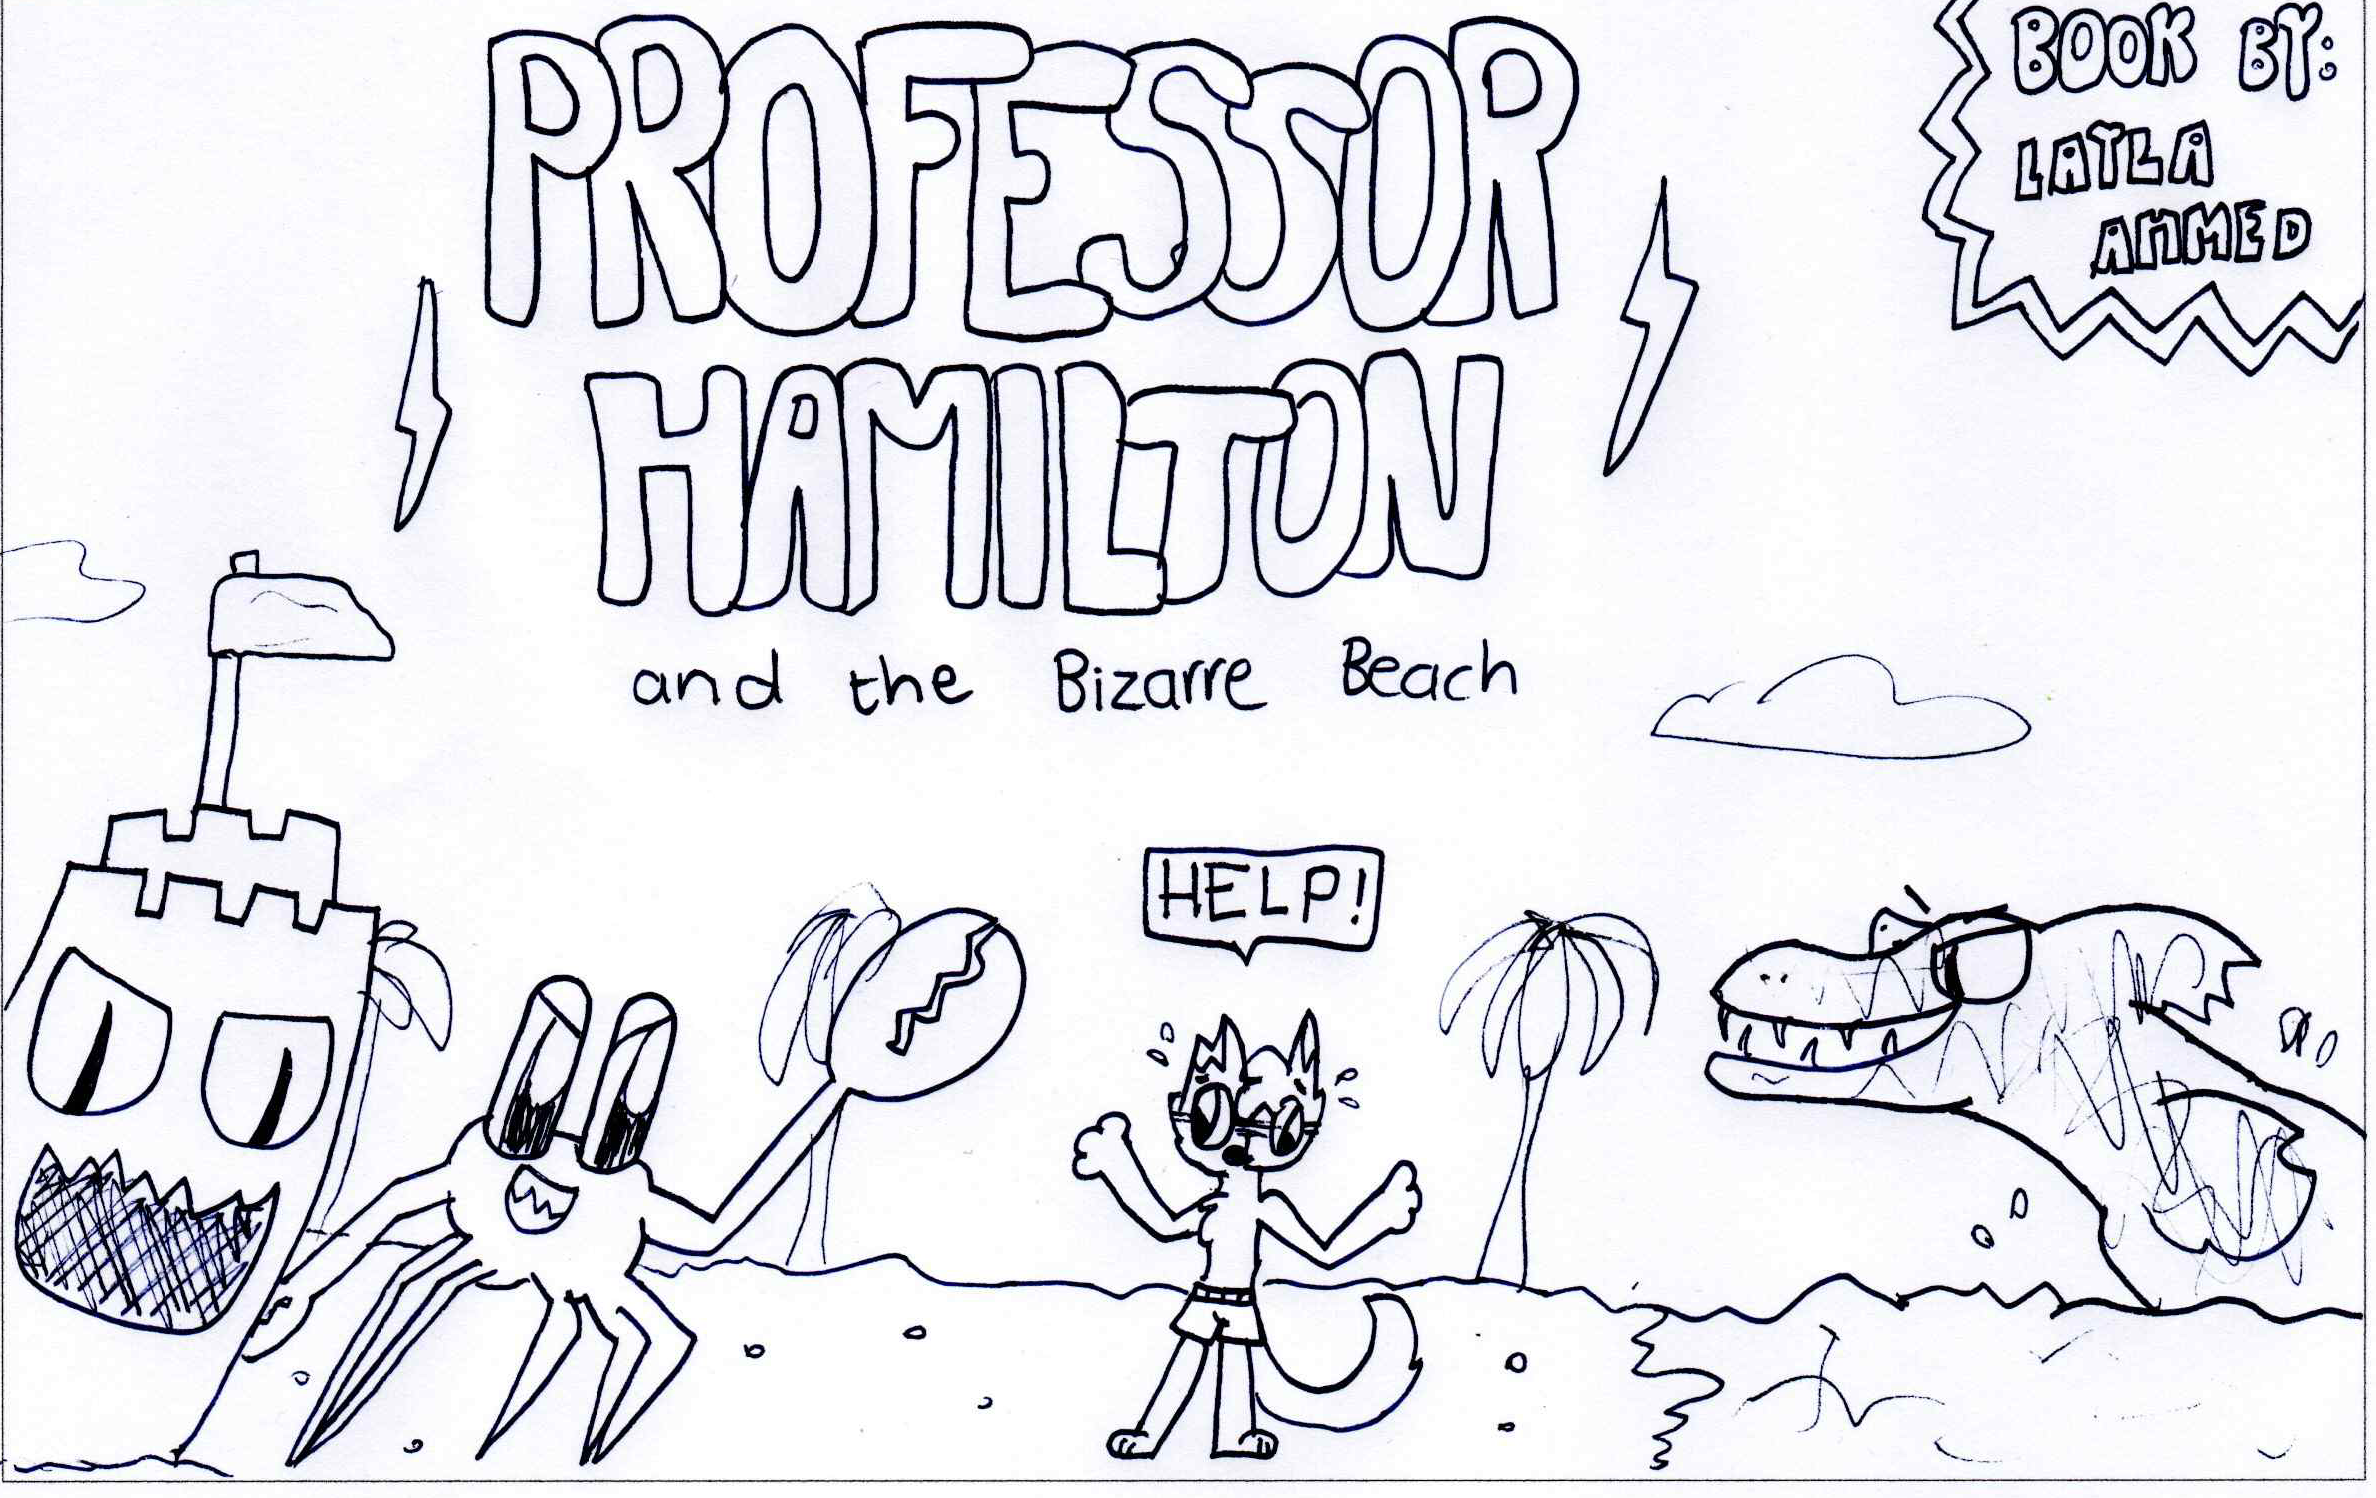 PROFESSOR
HAMILTON
and the Bizarre Beach
BOOK BY:
LAYLA
AHMED
HELP!